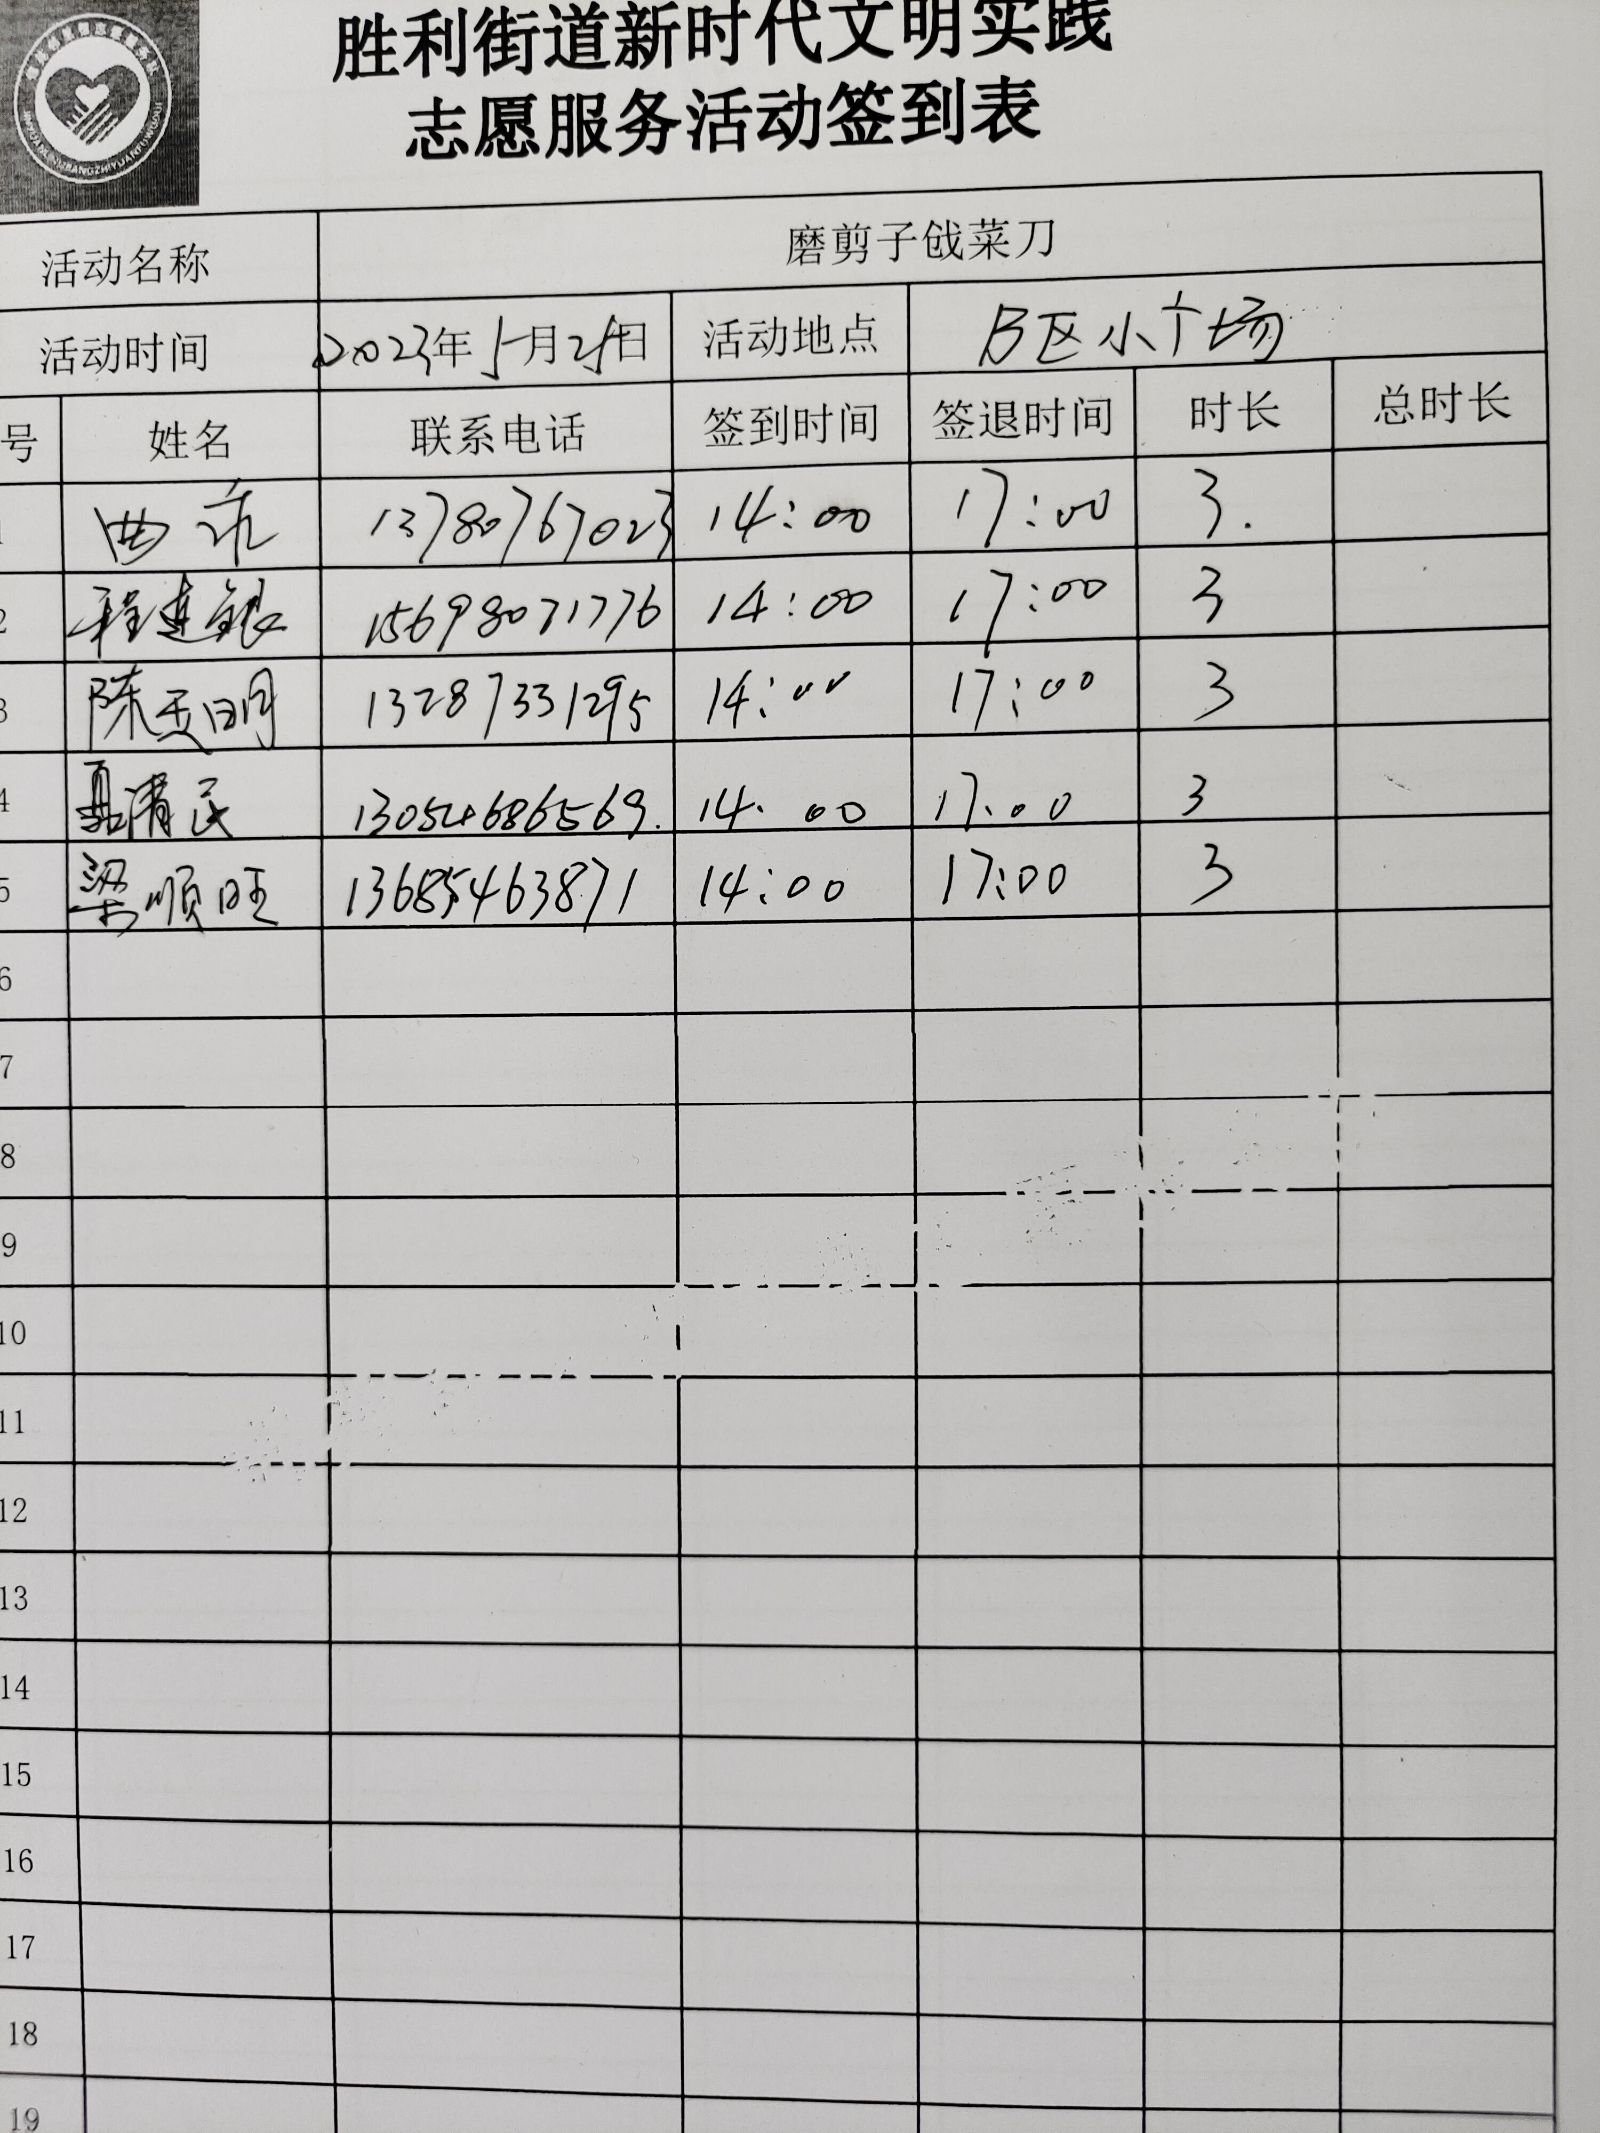 胜利街道新时代文明实践
志愿服务活动签到表
活动名称 磨剪子戗菜刀
活动时间 2023年5月25日 活动地点 B区小广场
号 姓名 联系电话 签到时间 签退时间 时长 总时长
1 曲 13780767023 14:00 17:00 3.
2 程连银 15698071776 14:00 17:00 3
3 陈玉明 13287331295 14:00 17:00 3
4 聂清民 13054686569. 14:00 17:00 3
5 梁顺旺 13685463871 14:00 17:00 3
6
7
8
9
10
11
12
13
14
15
16
17
18
19